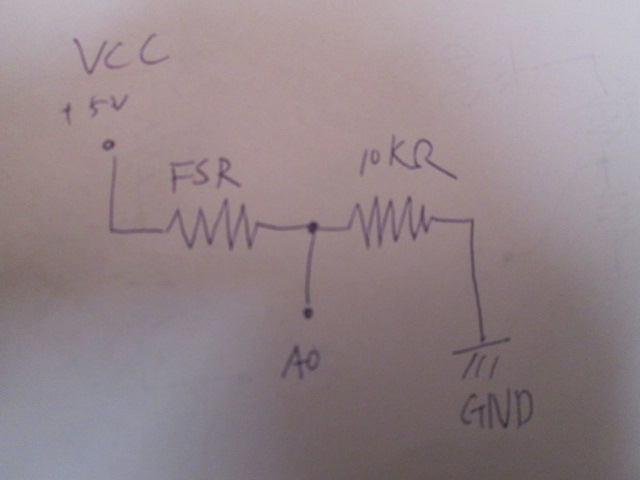 VCC
+5V
FSR
10KΩ
A0
GND